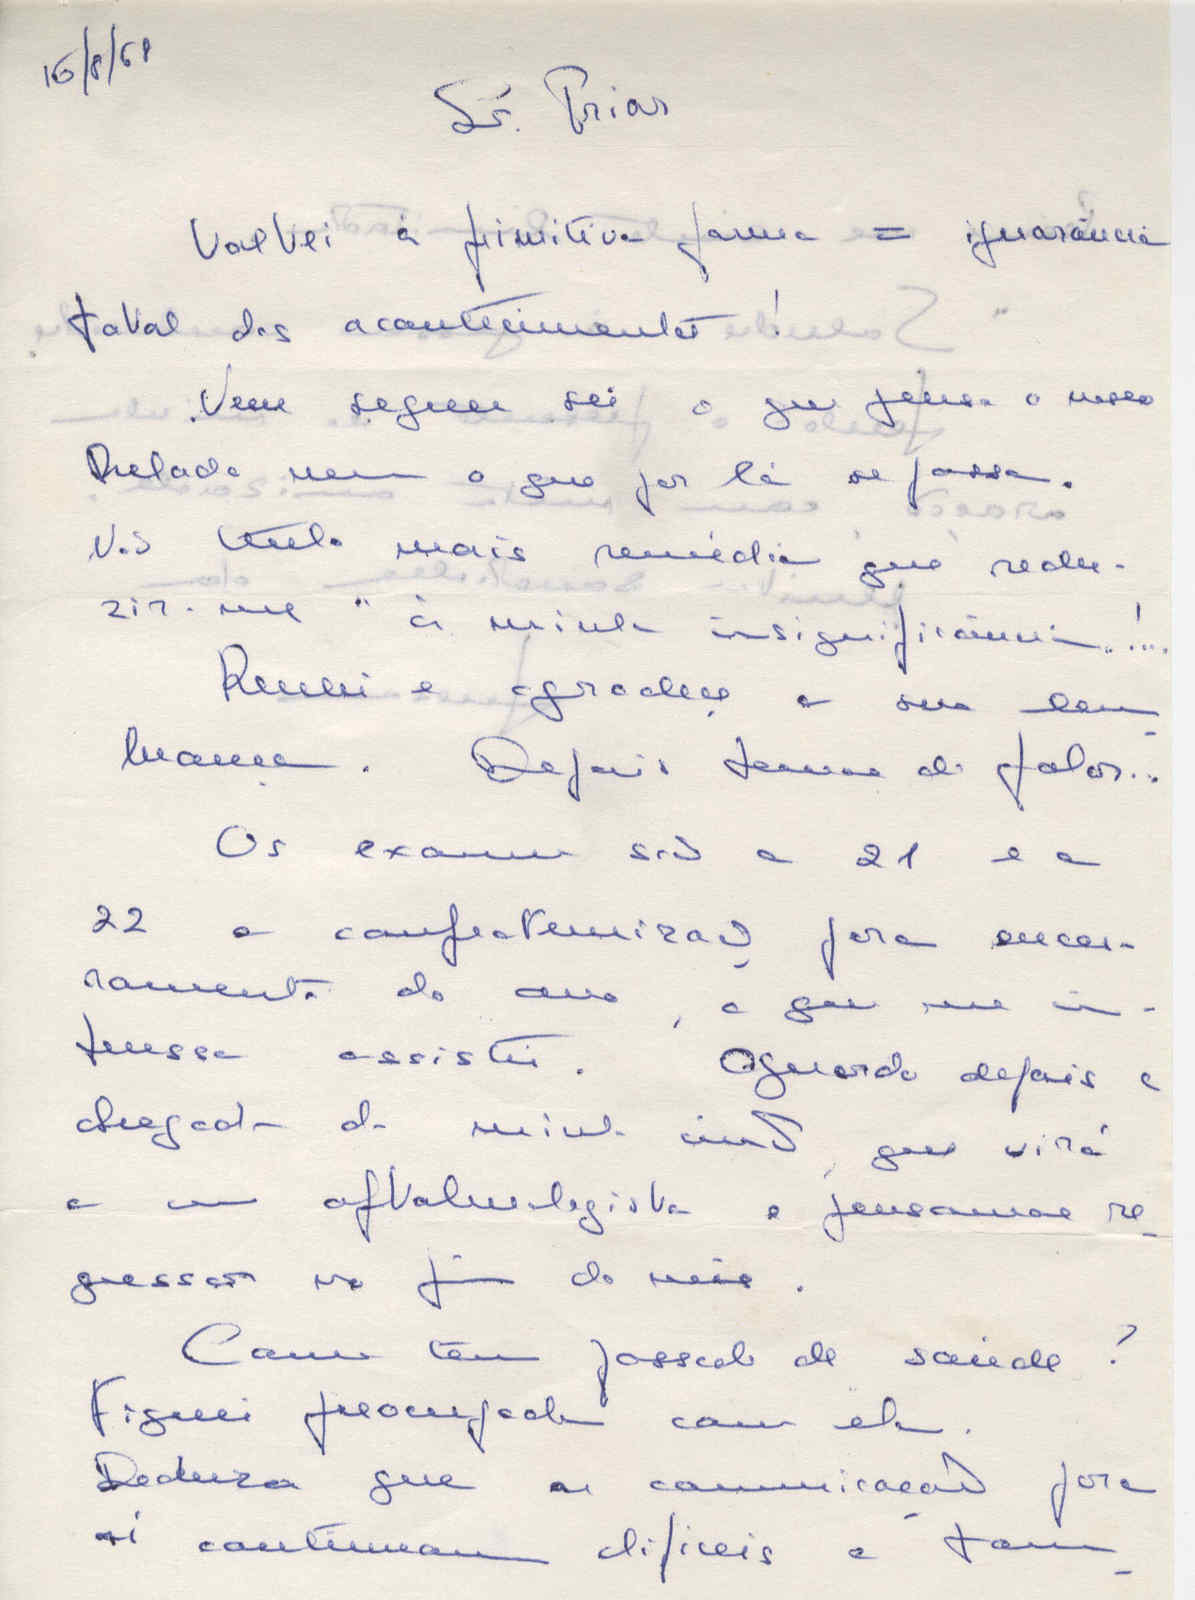 16/8/68
Sr. Prior
Voltei à primitiva forma = ignorância
total dos acontecimentos!
Nem sequer sei o que pensa o nosso
Prelado nem o que por lá se passa.
Não tenho mais remédio que redu-
zir-me "à minha insignificância..!...
Recebi e agradeço a sua lem-
brança. Depois temos de falar...
Os exames são a 21 e a
22 a confraternização para encer-
ramento do ano, a que me in-
teressa assistir. Aguardo depois a
chegada de minha irmã, que virá
a um oftalmologista e pensamos re-
gressar no fim do mês.
Como tem passado de saúde?
Fiquei preocupada com ela.
Deduzo que as comunicações para
aí continuam difíceis e tam-